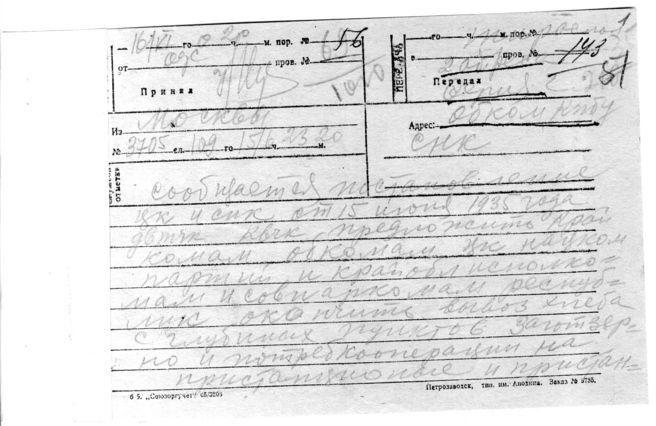 1
16/VI го 0 ч. 20 м. пор. № 56
от пров. №
Принял
1010
пор. №
в пров. № 143
51
Передал
ПЕРЕДАЧА
Из Москвы
№ 3705 сл. 109 го 15/6 ч. 23 м. 20
Адрес: обком
СНК
отметки
сообщается постановление
цк и снк от 15 июня 1935 года
двтчк квчк предложить край
комам обкомам цк нацком
партий и крайоблисполко=
мам и совнаркомам респуб=
лик окончить вывоз хлеба
с глубинных пунктов заготзер=
но и потребкооперации на
пристанционные и пристан=
6 5. „Союзоргучет"
Петрозаводск, тип. им. Анохина. Заказ № 3755.